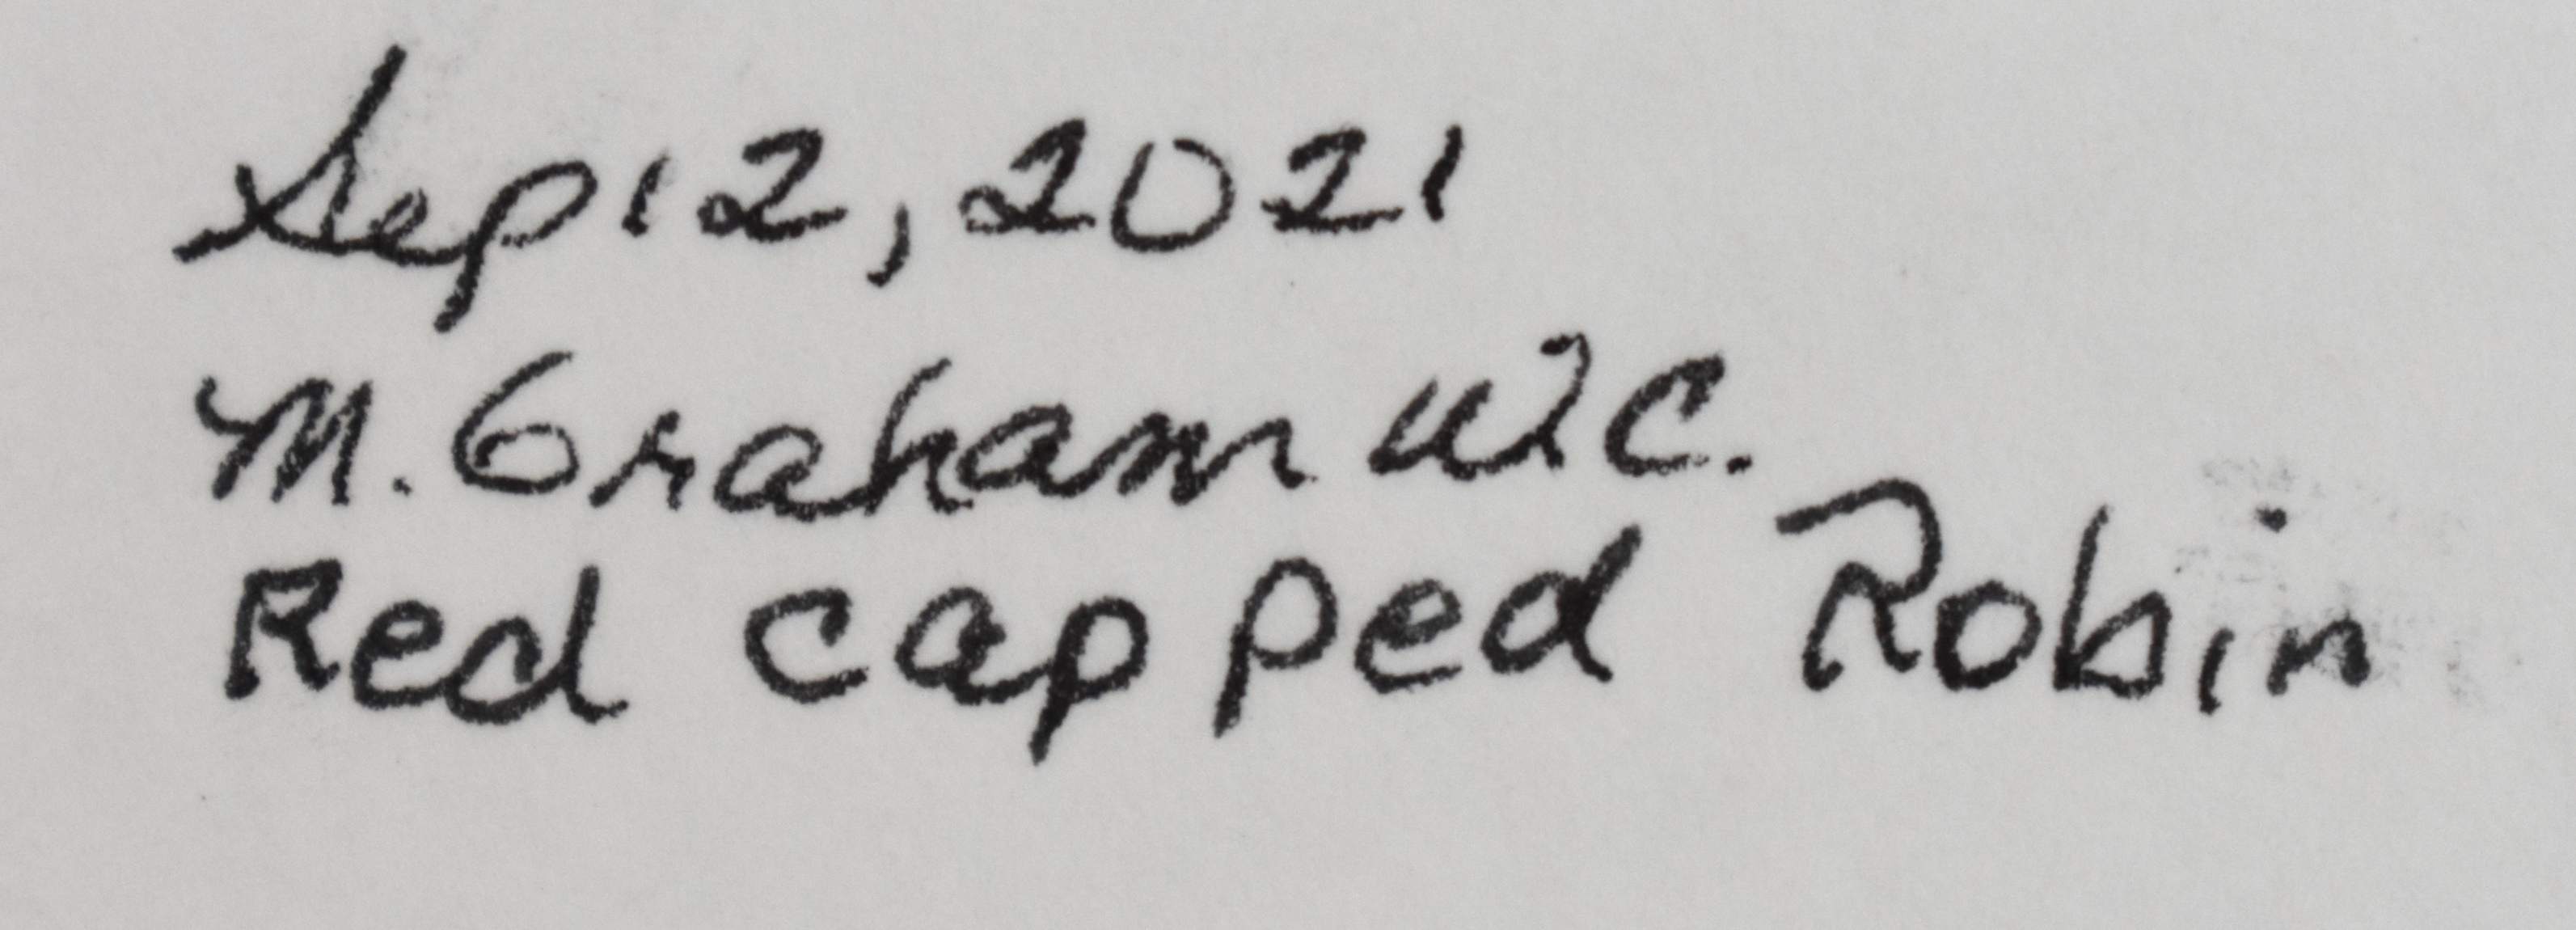 Sep 12, 2021
M. Graham W.C.
Red capped Robin